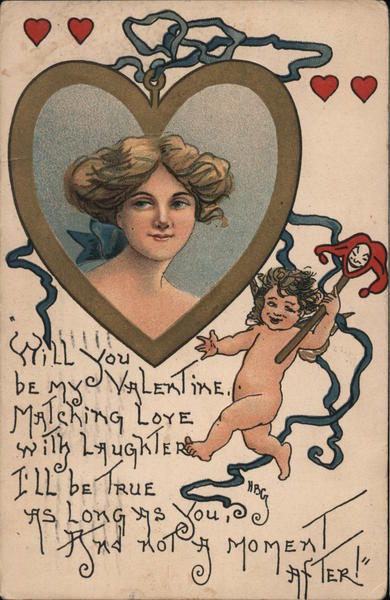 "Will you
be my Valentine,
Matching Love
with Laughter
I'll be true
as Long as you,
And not a moment
after!"
HBG